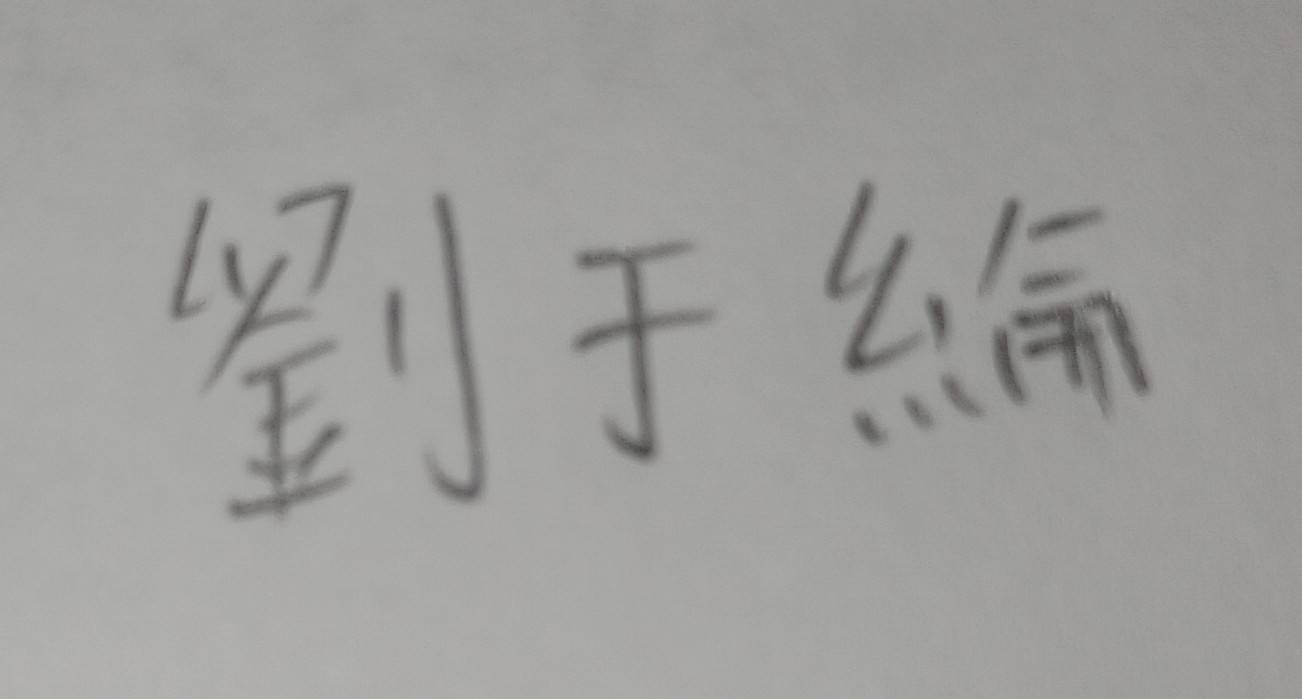 劉于綸